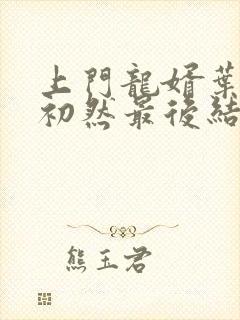 上門龍婿葉
初然最後結
熊玉君